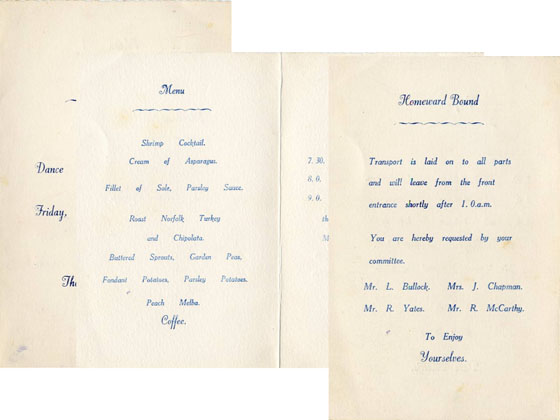 Dance
Friday,
Menu
Shrimp Cocktail.
Cream of Asparagus.
Fillet of Sole, Parsley Sauce.
Roast Norfolk Turkey
and Chipolata.
Buttered Sprouts, Garden Peas,
Fondant Potatoes, Parsley Potatoes.
Peach Melba.
Coffee.
7. 30.
8. 0.
9. 0.
Homeward Bound
Transport is laid on to all parts
and will leave from the front
entrance shortly after 1. 0.a.m.
You are hereby requested by your
committee.
Mr. L. Bullock. Mrs. J. Chapman.
Mr. R. Yates. Mr. R. McCarthy.
To Enjoy
Yourselves.